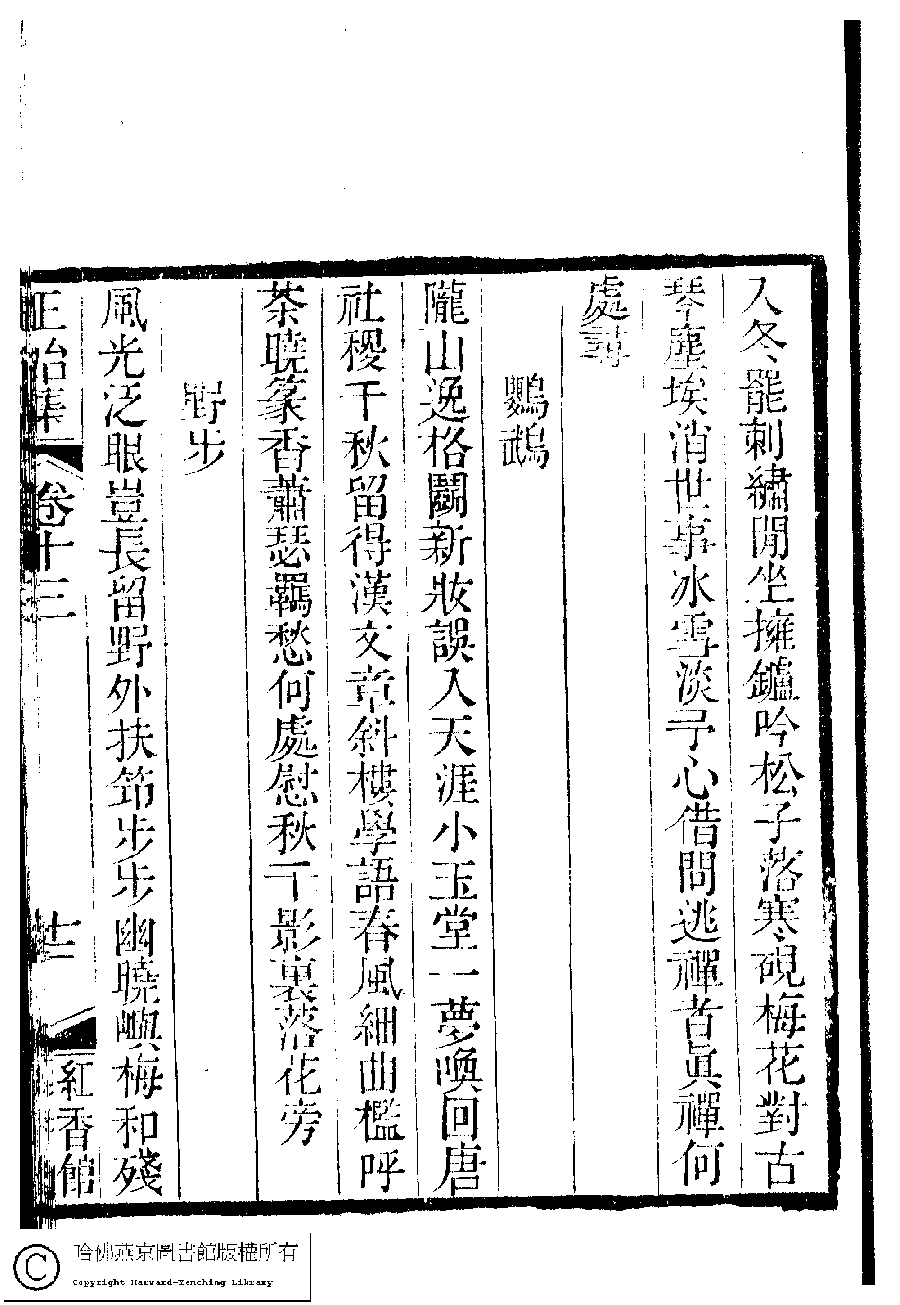 入冬罷刺繡閒坐擁鑪吟松子落寒硯梅花對古
琴塵埃消世事冰雪淡予心借問逃禪者眞禪何
處尋
鸚鵡
隴山逸格鬭新妝誤入天涯小玉堂一夢喚回唐
社稷千秋留得漢文章斜樓學語春風細曲檻呼
茶曉篆香蕭瑟羈愁何處慰秋千影裏落花旁
野步
風光泛眼豈長留野外扶筇步步幽曉嶼梅和殘
正始集
卷十三
十二
紅香館
哈佛燕京圖書館版權所有
Copyright Harvard-Yenching Library